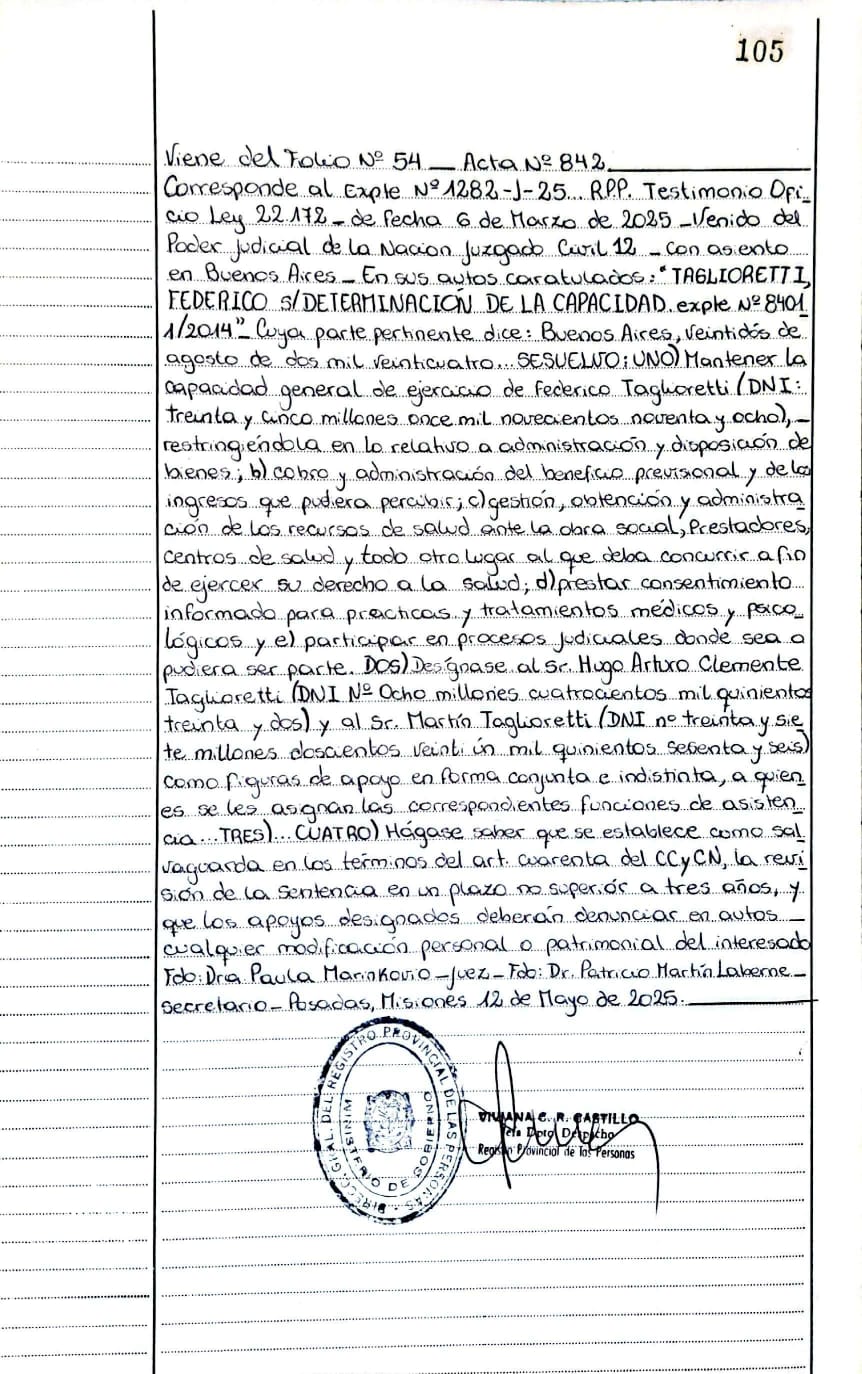 105
Viene del Folio Nº 54 _ Acta Nº 842.
Corresponde al Expte Nº 1282-J-25... R.P.P. Testimonio Ofi_
cio Ley 22.172 _ de fecha 6 de Marzo de 2025 _ Venido del
Poder Judicial de la Nacion Juzgado Civil 12 _ con asiento
en Buenos Aires _ En sus autos caratulados: "TAGLIORETTI,
FEDERICO s/DETERMINACIÓN DE LA CAPACIDAD. expte Nº 8401
1/2014" _ Cuya parte pertinente dice: Buenos Aires, veintidós de
agosto de dos mil veinticuatro... SESUELVO: UNO) Mantener la
capacidad general de ejercicio de Federico Taglioretti (DNI:
treinta y cinco millones once mil novecientos noventa y ocho), _
restringiéndola en lo relativo a administración y disposición de
bienes; b) cobro y administración del beneficio previsional y de los
ingresos que pudiera percibir; c) gestión, obtención y administra
ción de los recursos de salud ante la obra social, Prestadores,
centros de salud y todo otro lugar al que deba concurrir a fin
de ejercer su derecho a la salud; d) prestar consentimiento
informado para practicas y tratamientos médicos y psico_
lógicos y e) participar en procesos judiciales donde sea o
pudiera ser parte. DOS) Desígnase al Sr. Hugo Arturo Clemente
Taglioretti (DNI Nº Ocho millones cuatrocientos mil quinientos
treinta y dos) y al Sr. Martín Taglioretti (DNI nº treinta y sie
te millones doscientos veinti ún mil quinientos sesenta y seis)
como figuras de apoyo en forma conjunta e indistinta, a quien_
es se les asignan las correspondientes funciones de asisten_
cia... TRES)... CUATRO) Hágase saber que se establece como sal
vaguarda en los términos del art. cuarenta del CCyCN, la revi
sión de la sentencia en un plazo no superior a tres años, y
que los apoyos designados deberán denunciar en autos _
cualquier modificación personal o patrimonial del interesado
Fdo: Dra Paula Marinkovio - Juez - Fdo: Dr. Patricio Martín Laberne -
Secretario - Posadas, Misiones 12 de Mayo de 2025.
DIRECC. GRAL. DEL REGISTRO PROVINCIAL DE LAS PERSONAS
MINISTERIO DE GOBIERNO
VIVIANA C. R. CASTILLO
Jefa Dpto. Despacho
Registro Provincial de las Personas